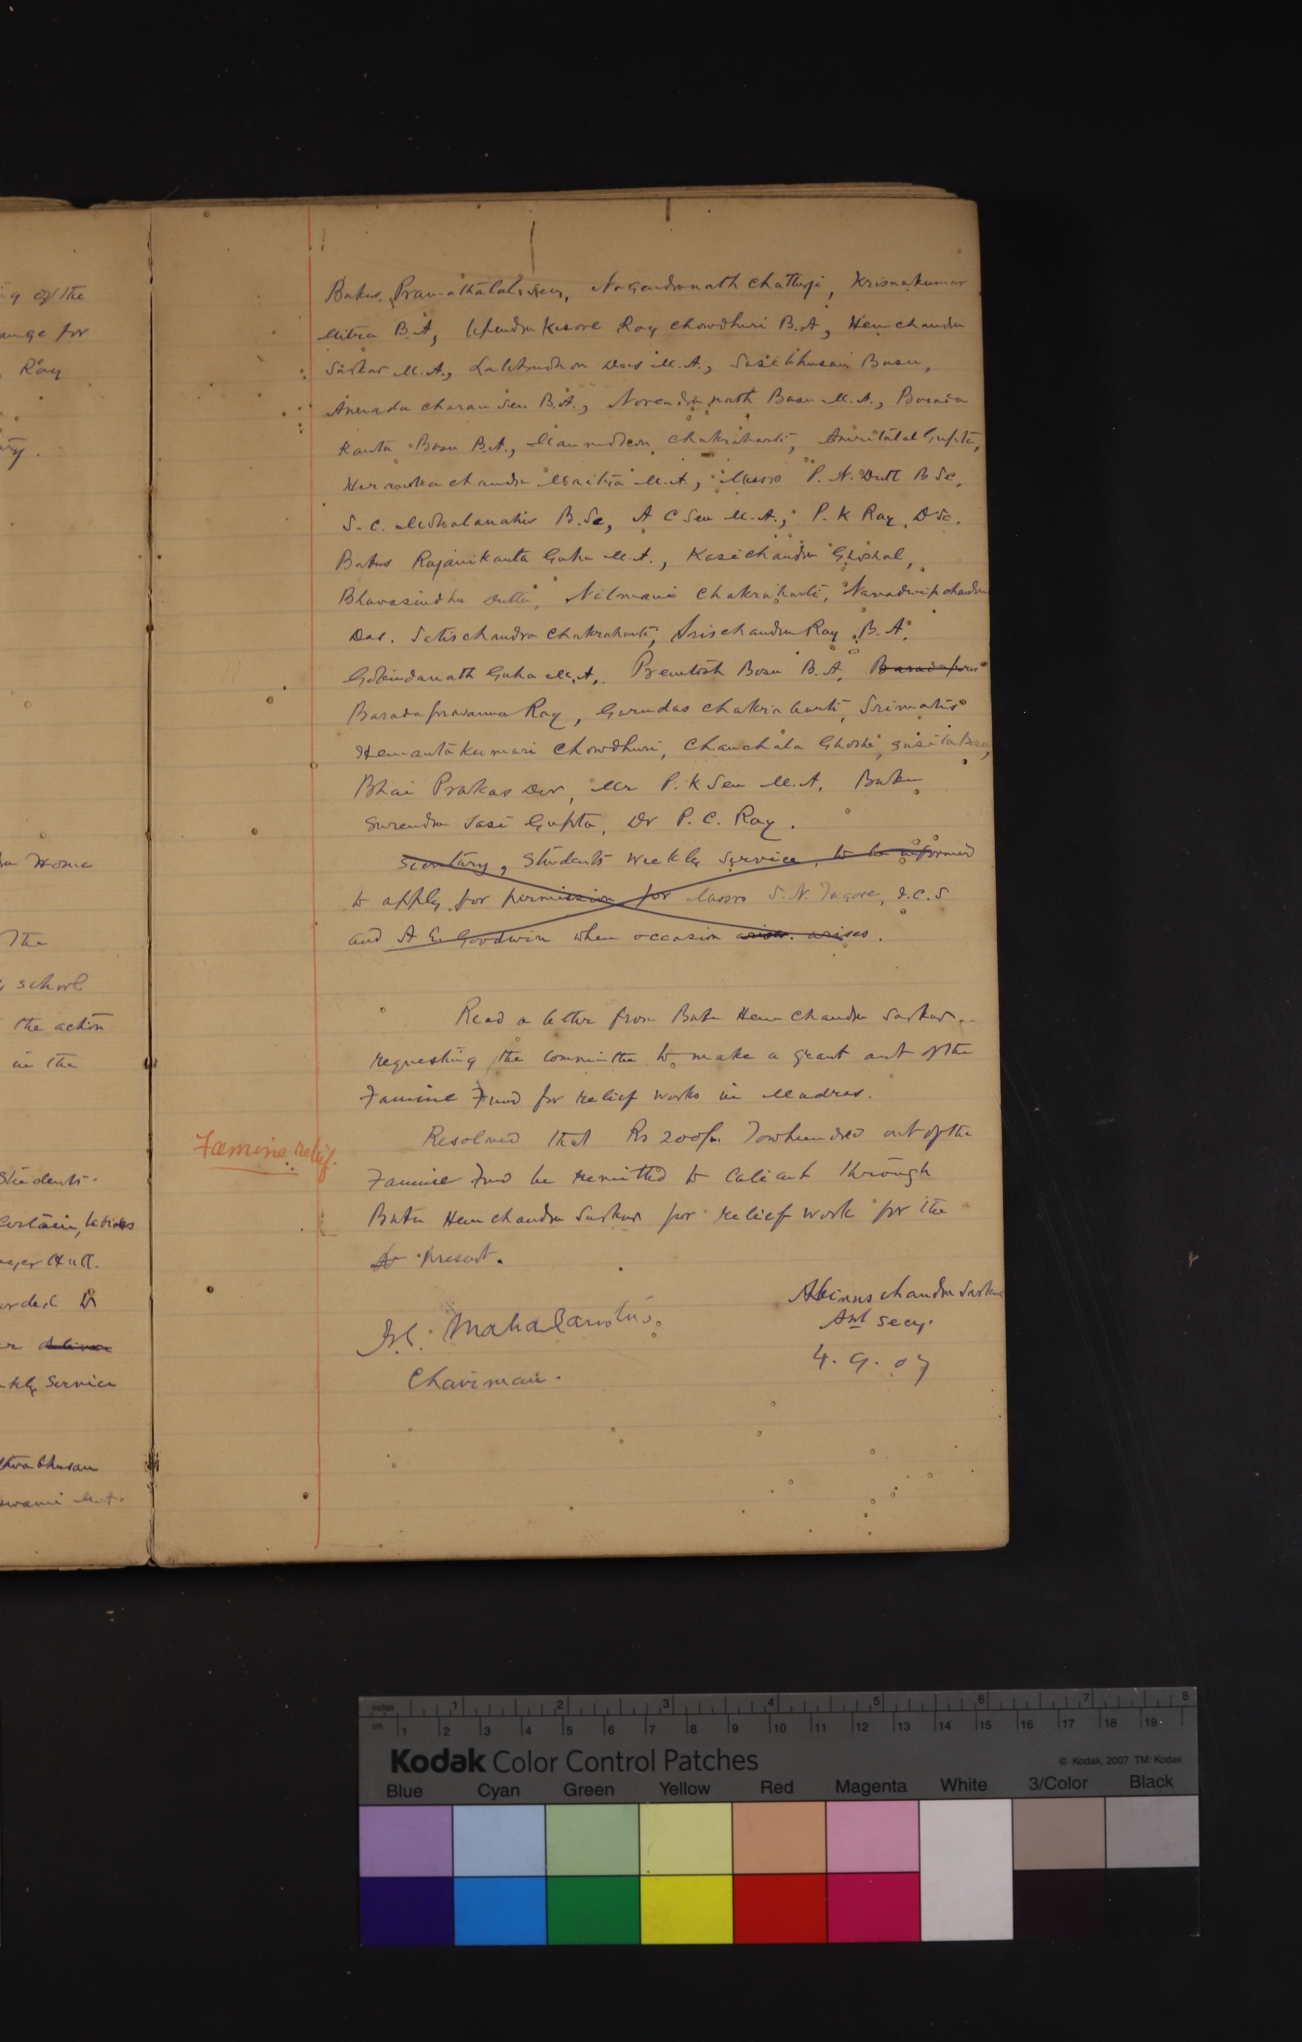 g of the
ange for
Ray
ry.
Home
The
school
the action
in the
Students.
certain, tabias
ager Hall.
orded to
r deliver
kly Service
wabhusan
swami M.A.
Babus Pramathalal Sen, Nagendranath Chatterji, Krisnakumar
Mitra B.A, Upendra Kisore Ray Chowdhuri B.A, Hem chandra
Sarkar M.A., Lalitmohon Das M.A., Sasibhusan Basu,
Annada charan Sen B.A., Norendra nath Basu M.A., Barada
Kanta Basu B.A., Manmohon Chakrabarti, Amritalal Gupta,
Heramba chandra Maitra M.A., Messrs P. N. Dutt B Sc,
S. C. Mahalanabis B.Sc, A C Sen M.A., P. K Ray, D Sc.
Babus Rajanikanta Guha M.A., Kasichandra Ghoshal,
Bhavasindhu Dutta, Nilmani Chakrabarti, Navadwipchandra
Das. Satischandra Chakrabarti, Srischandra Ray B. A,
Gobindanath Guha M.A,. Premtosh Bosu B. A. Baradapras
Baradaprasanna Ray, Gurudas Chakrabarti, Srimatis
Hemantakumari Chowdhuri, Chanchala Ghosh, Susila Basu,
Bhai Prakas Dev, Mr P. K Sen M.A, Babu
Surendra Sasi Gupta, Dr P. C. Ray.
Secretary, Students Weekly Service, to be informed
to apply for permission for Messrs S. N. Tagore, I.C.S
and A E. Goodwin when occasion arises. arises.
Read a letter from Babu Hem Chandra Sarkar.
requesting the committee to make a grant out of the
Famine Fund for relief works in Madras.
Famine relief.
Resolved that Rs 200/- Towhundred out of the
Famine Fund be remitted to Calicut through
Babu Hemchandra Sarkar for relief work for the
present.
Mahalanobis.
Chairman.
Abinaschandra Sarkar
Asst Secy.
4. 9. 07
inches 1 2 3 4 5 6 7 8
cm 1 2 3 4 5 6 7 8 9 10 11 12 13 14 15 16 17 18 19
Kodak Color Control Patches © Kodak, 2007 TM: Kodak
Blue Cyan Green Yellow Red Magenta White 3/Color Black